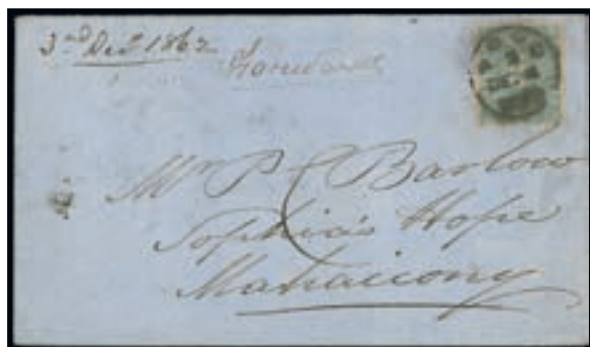 3rd Decr 1862
Mr P Barlow
Sophia's Hope
Mahaicony